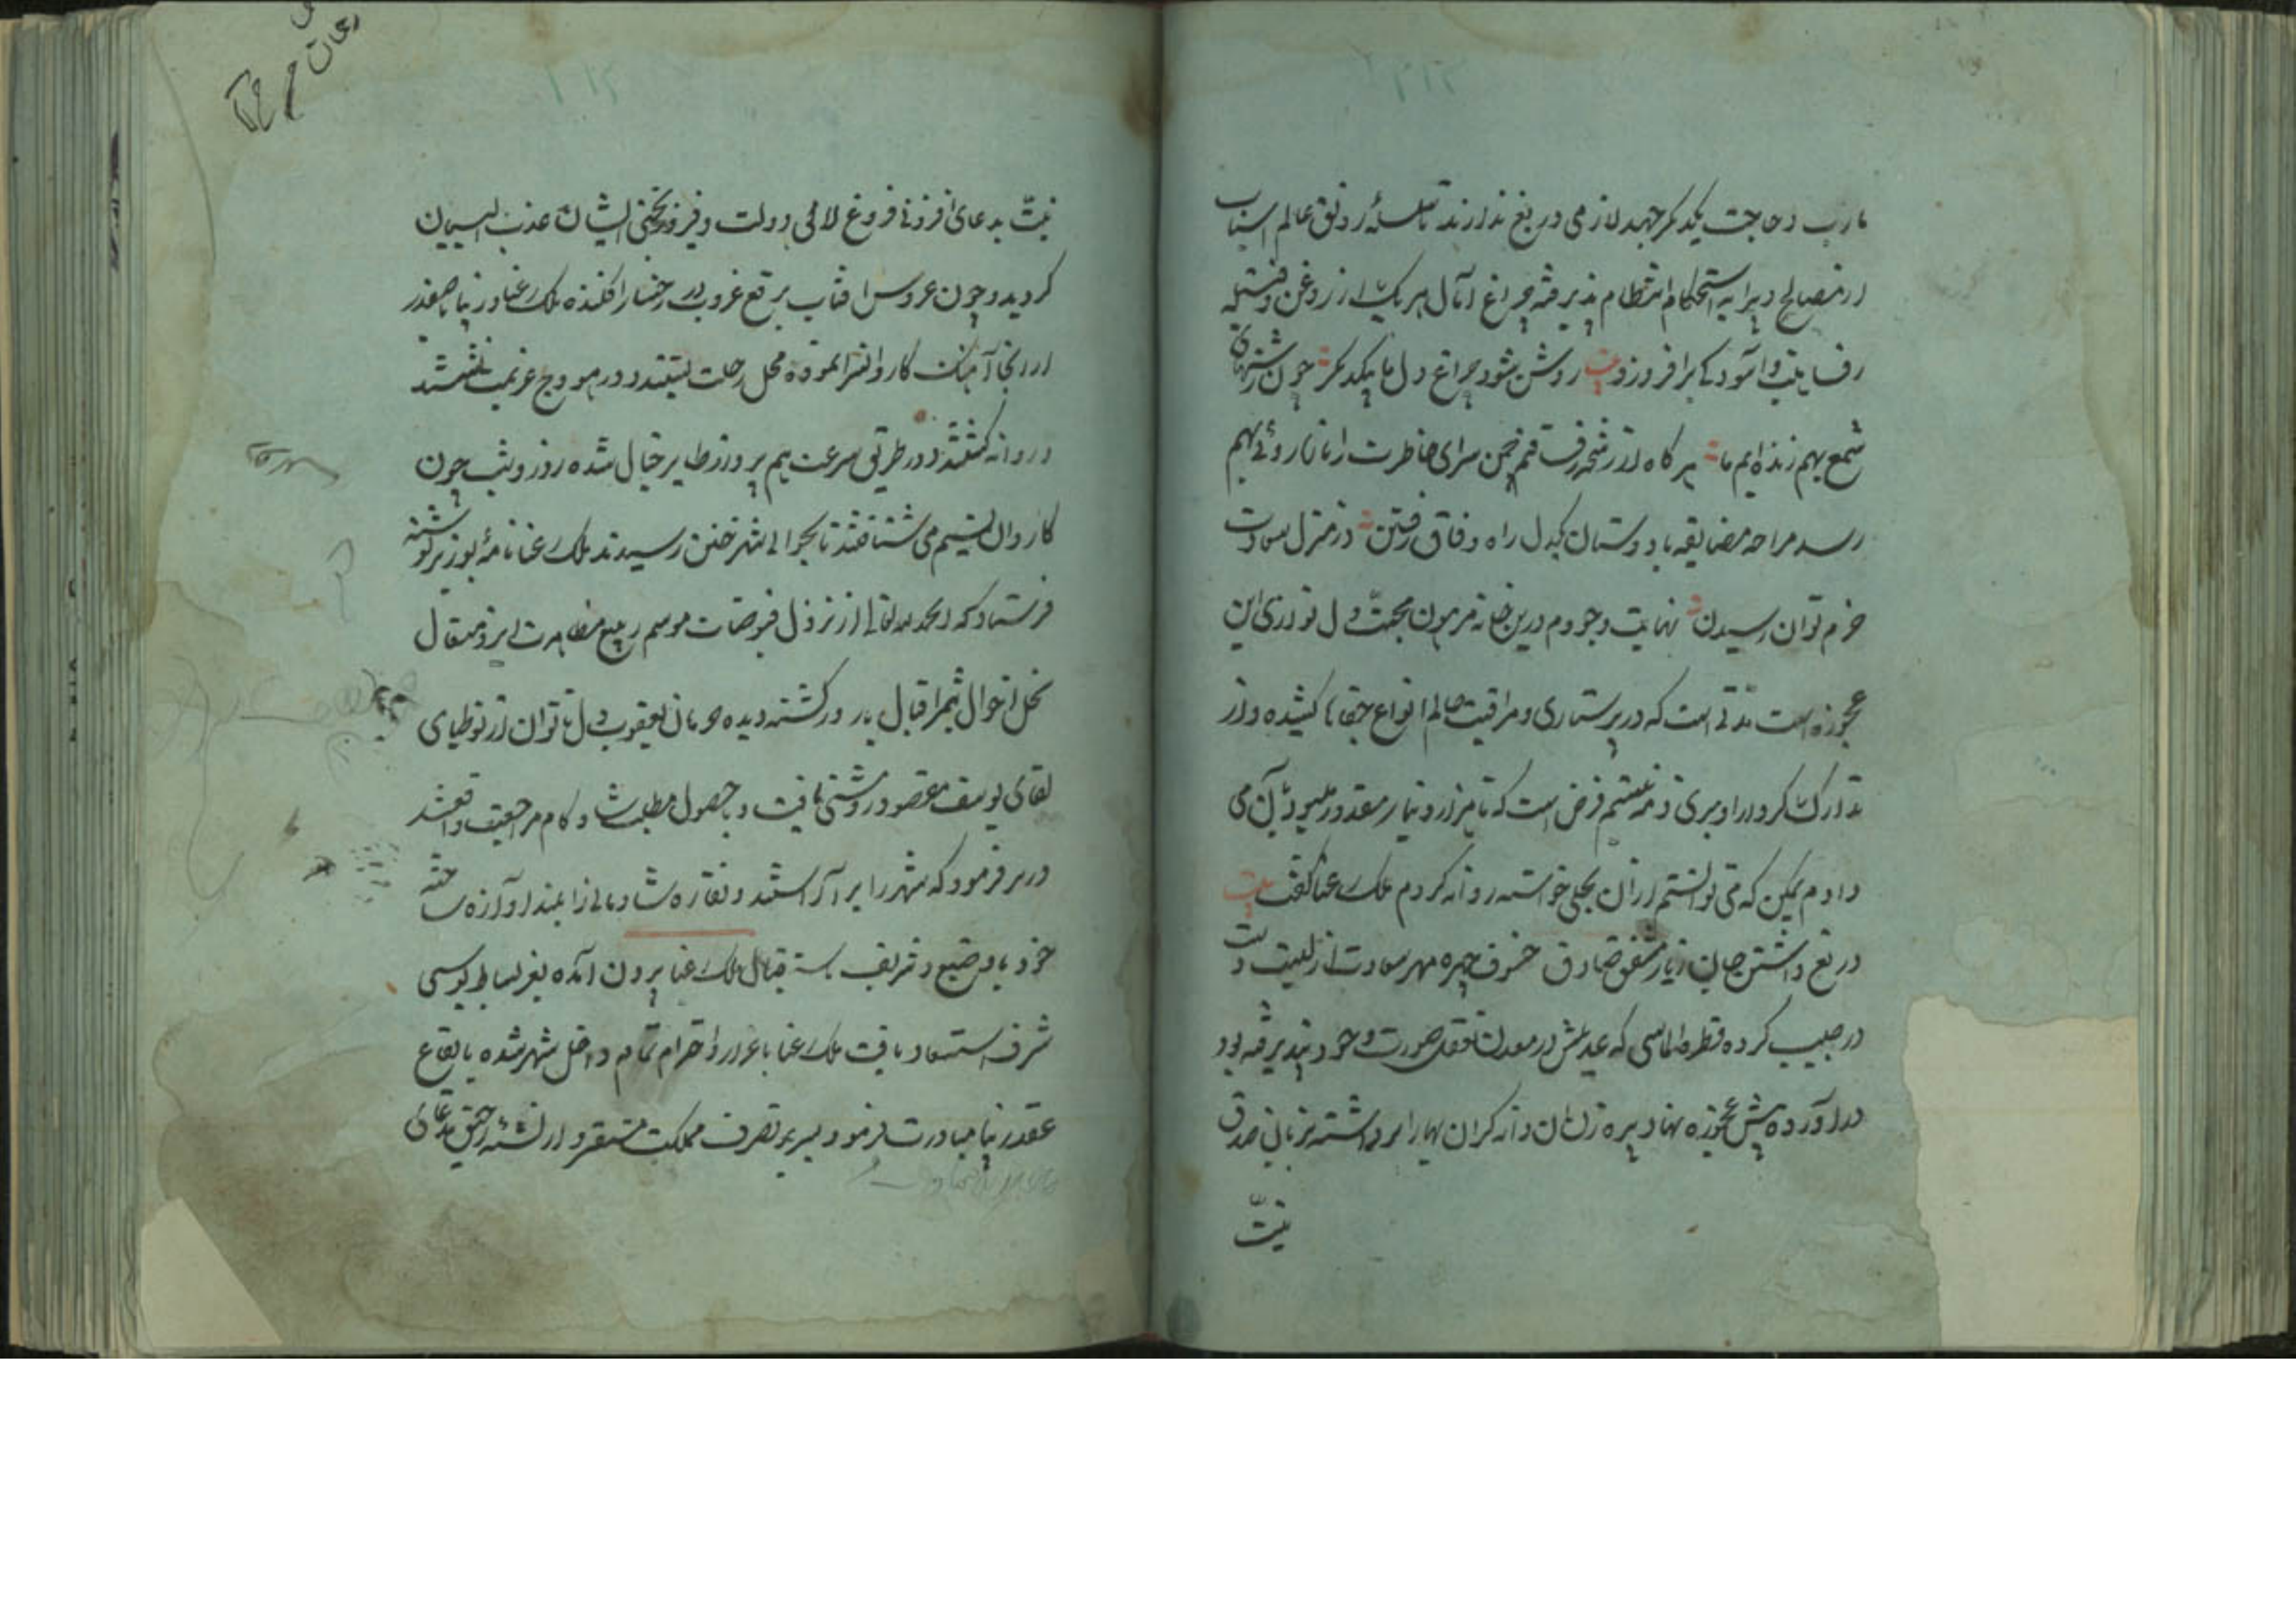 مارب و حاجت یکدیگر جهد لازمی دریغ ندارند تا سلسلهٔ رونق عالم اسباب
ازین مصالح و پیرایه استحکام انتظام پذیرفته چراغ آمال هر یک از روغن و فتیله
رفاهیت و آسودگی برافروزد بیت روشن شود چراغ دل ما ز یکدگر چون رشتهای
شمع بهم زنده‌ایم ما هرگاه از رشحه رفت قلم چمن سرای خاطرت را تازه روئی بهم
رسد مرا چه مضایقه با دوستان یکدل راه وفاق رفتن در منزل سعادت
خرم توان رسیدن نهایت وجودم درین خانه مرهون محبت دل نوازی این
عجوزه است مدتی است که در پرستاری و مراقبت حالم انواع جفاها کشیده و از
تدارک کردار او بری ذمه نیستم فرض است که تا هزار دینار مقدور میسور بآن می
دادم لیکن که می توانستم ازان بجلی خواسته روانه کردم ملکه رعنا گفت بیت
دریغ داشتن جان ز یار مشفق صادق خسوف چهره مهر سعادت ازلیست دست
در جیب کرده قطره الماسی که عدیلش در معدن تفقد صورت وجود نپذیرفته بود
درآورده پیش عجوزه نهاد پیره زن آن دانه گران بها را برداشته بزبان صدق
نیت
نیت بدعای افزونی فروغ لامی دولت و فیروزبختی ایشان عذب البیان
گردید و چون عروس آفتاب برقع غروب بر رخسار افکنده ملکه رعنا و زیبا
ازانجا آهنگ کاروانسرا نموده محمل رحلت بستند و در هودج عزیمت نشستند
و روانه گشتند و در طریق سرعت هم پرواز طایر خیال شده روز و شب چون
کاروان نسیم می شتافتند تا بحوالی شهر ختن رسیدند ملکه رعنا نامهٔ بوزیر نوشته
فرستاد که الحمد لله تعالی از نزول فیوضات موسم ربیع مظاهرت ایزد متعال
نخل احوال بثمر اقبال بارور گشته دیده حرمان یعقوب دل ناتوان از توتیای
لقای یوسف مقصود روشنی یافت و بحصول مطلب شاد و کام مراجعت واقع شد
وزیر فرمود که شهر را بر آراستند و نقاره شادمانی را بلند آوازه ساخته
خود با وضیع و شریف باستقبال ملکه رعنا برون آمده بعز بساط بوسی
شرف استسعاد یافت ملکه رعنا باعزاز و احترام تمام داخل شهر شده بایقاع
عقد زیبا مبادرت فرمود و بسریر تصرف مملکت مستقر و از نشئه رحیق مدعای